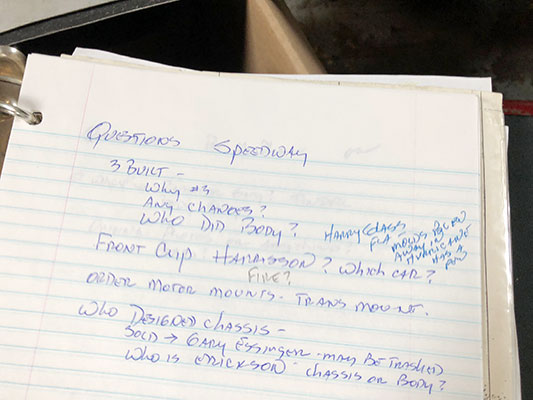 QUESTIONS SPEEDWAY
3 BUILT -
WHY #3
ANY CHANGES?
WHO DID BODY?
HARRY GLASS
FLA -
MOLDS BLOWN
AWAY IN
HURRICANE
HAS A
#3
FRONT CLIP HARRISSON? WHICH CAR?
FIRE?
ORDER MOTOR MOUNTS. TRANS MOUNT.
WHO DESIGNED CHASSIS -
SOLD → GARY ESSINGER - MAY BE TRASHED
WHO IS ERICKSON - CHASSIS OR BODY?